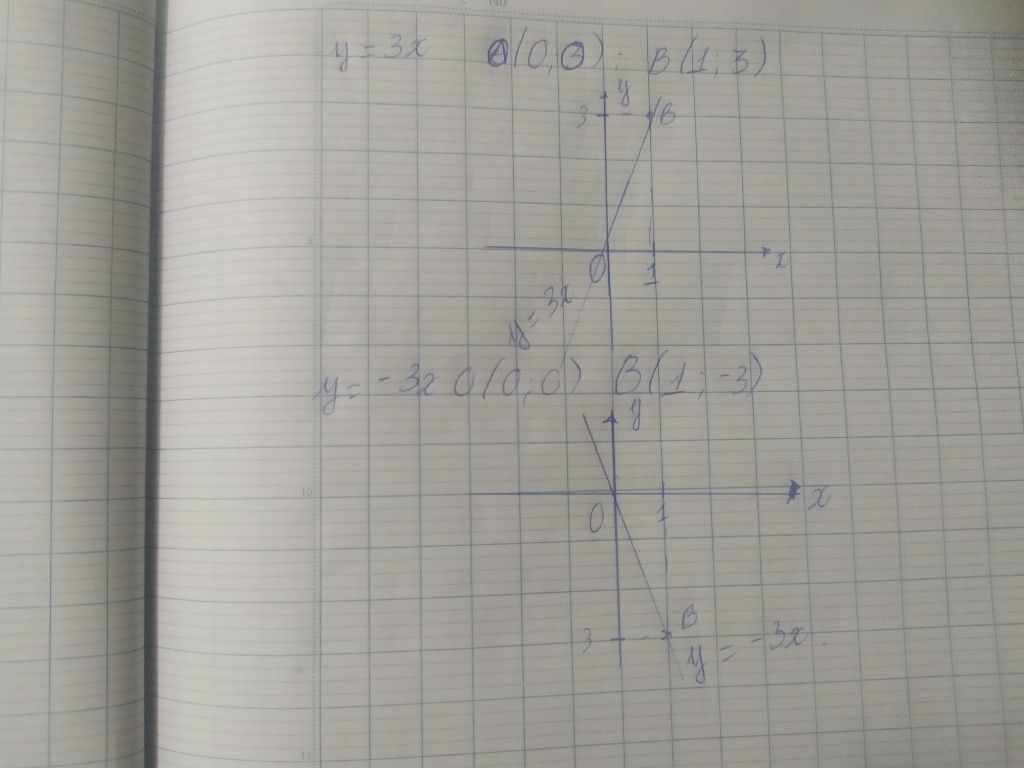 No
y = 3x O(0, 0) ; B(1; 3)
y
3 B
5
O 1 x
y = 3x
y = -3x O(0; 0) B(1; -3)
y
10
O 1 x
3 B
y = -3x
15